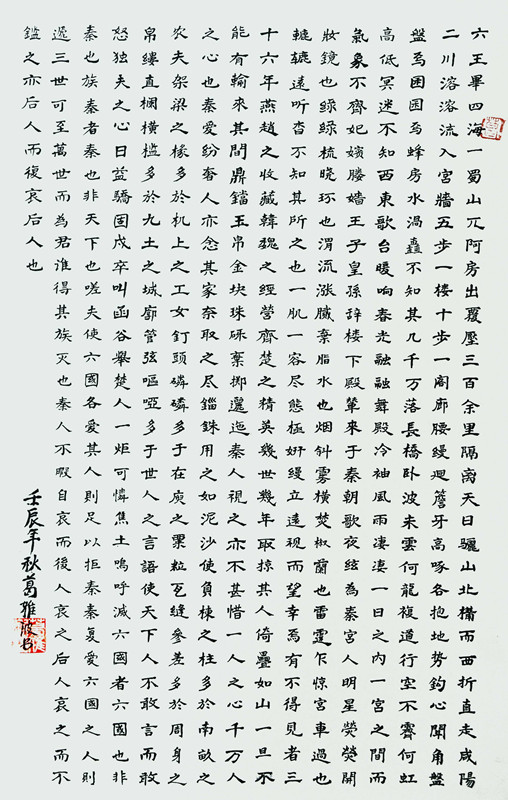 六王畢四海一蜀山兀阿房出覆壓三百余里隔离天日驪山北構而西折直走咸陽
二川溶溶流入宮牆五步一楼十步一阁廊腰縵迴簷牙高啄各抱地势鈎心閗角盤
盤焉囷囷焉蜂房水渦矗不知其几千万落長橋卧波未雲何龍複道行空不霽何虹
高低冥迷不知西東歌台暖响春光融融舞殿冷袖風雨凄凄一日之内一宮之間而
氣象不齊妃嬪媵嬙王子皇孫辞楼下殿輦來于秦朝歌夜絃為秦宮人明星熒熒開
妝鏡也緑緑梳晓环也渭流漲膩棄脂水也烟斜雾横焚椒蘭也雷霆乍惊宮車過也
轆轆遠听杳不知其所之也一肌一容尽態極妍縵立遠視而望幸焉有不得見者三
十六年燕趙之收藏韓魏之經營齊楚之精英幾世幾年取掠其人倚疊如山一旦不
能有輸來其間鼎鐺玉帛金块珠砾棄擲邐迤秦人視之亦不甚惜一人之心千万人
之心也秦愛纷奢人亦念其家奈取之尽錙銖用之如泥沙使負棟之柱多於南畝之
农夫架梁之椽多於机上之工女釘頭磷磷多于在庾之粟粒瓦缝參差多於周身之
帛縷直梱横槛多於九土之城廓管弦嘔啞多于世人之言語使天下人不敢言而敢
怒独夫之心日益驕固戍卒叫函谷舉楚人一炬可憐焦土嗚呼滅六國者六國也非
秦也族秦者秦也非天下也嗟夫使六國各愛其人則足以拒秦秦复愛六国之人則
遞三世可至萬世而為君誰得其族灭也秦人不暇自哀而後人哀之后人哀之而不
鑑之亦后人而復哀后人也
壬辰年秋葛雅波书